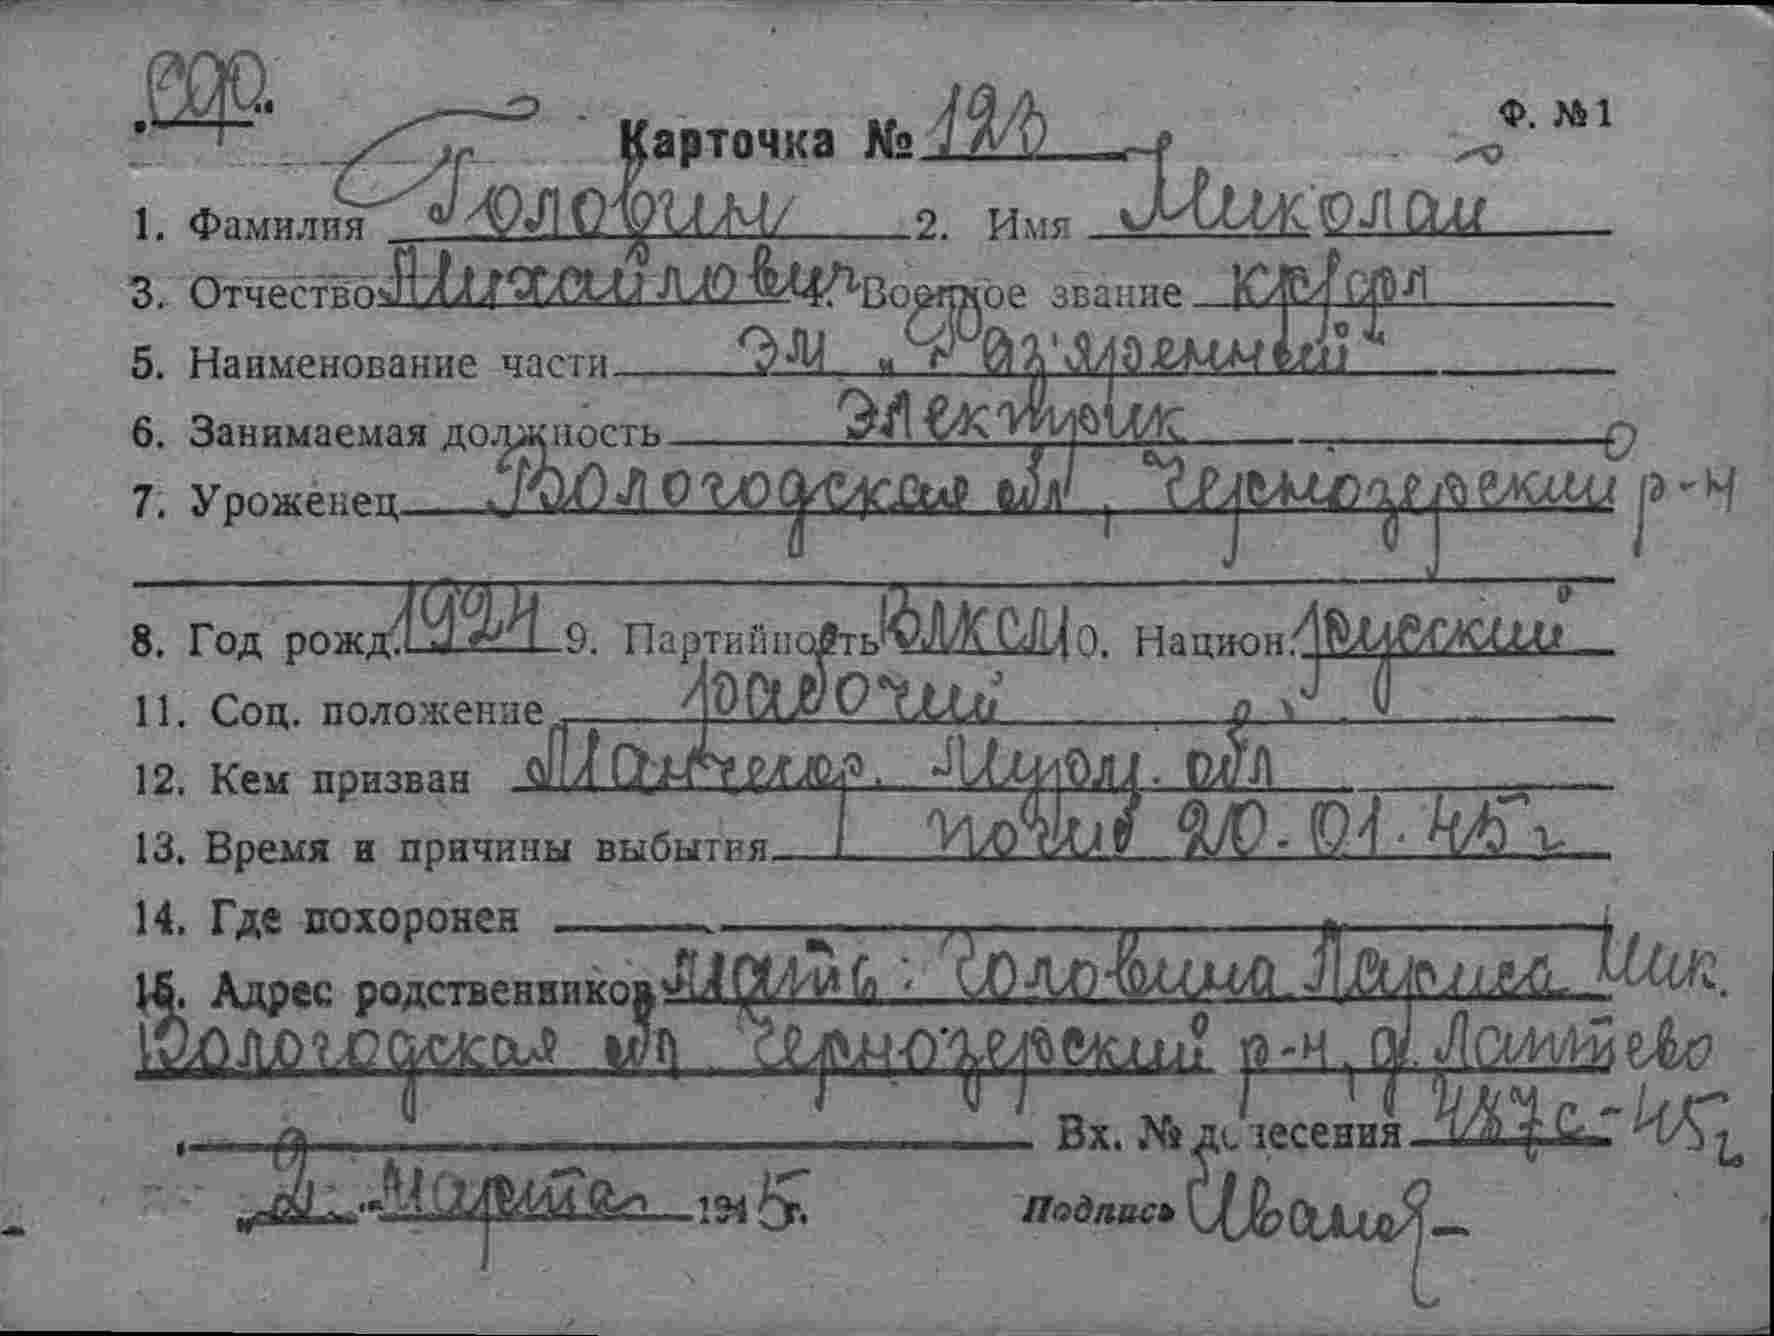 Ф. №1
Карточка № 123
1. Фамилия Головин 2. Имя Николай
3. Отчество Михайлович 4. Военное звание кр/фл
5. Наименование части эм „Раз'яренный"
6. Занимаемая должность электрик
7. Уроженец Вологодская обл, Чернозерский р-н
8. Год рожд. 1924 9. Партийность ВЛКСМ 10. Национ. русский
11. Соц. положение рабочий
12. Кем призван Мончегор. Мурм. обл
13. Время и причины выбытия погиб 20.01.45 г
14. Где похоронен
15. Адрес родственников мать: Головина Лариса Ник.
Вологодская обл Чернозерский р-н, д. Лаптево
Вх. № донесения 487с-45г
„2" марта 1945г. Подпись